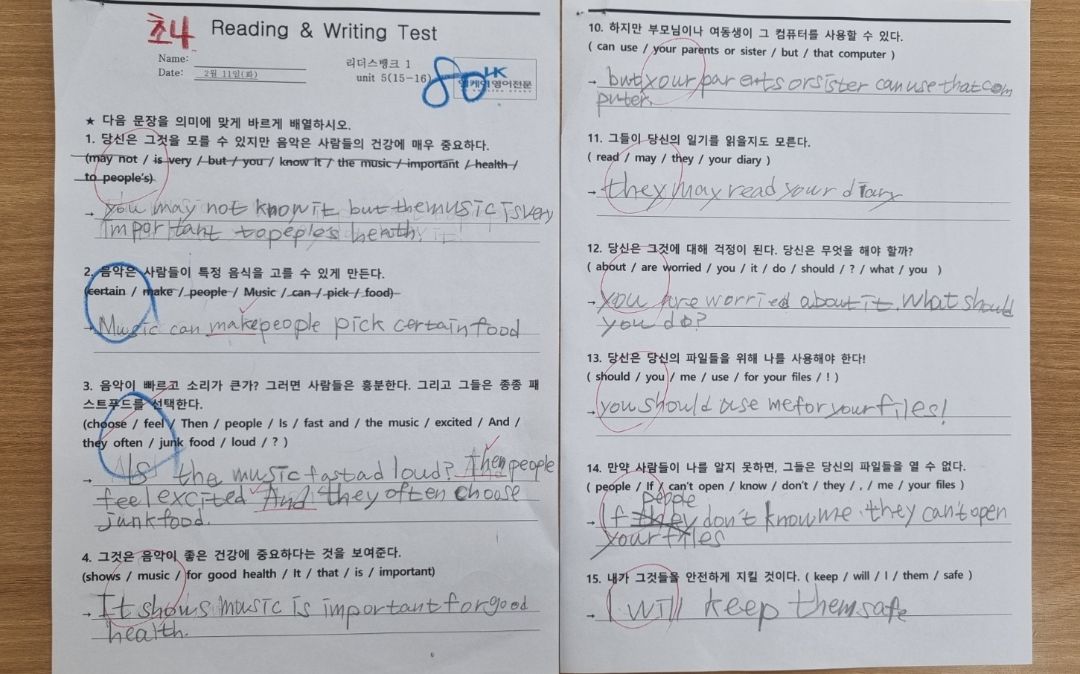 초4 Reading & Writing Test
Name:
Date: 2월 11일(화)
리더스뱅크 1
unit 5(15-16)
80
HK
엘케이영어전문
★ 다음 문장을 의미에 맞게 바르게 배열하시오.
1. 당신은 그것을 모를 수 있지만 음악은 사람들의 건강에 매우 중요하다.
(may not / is very / but / you / know it / the music / important / health /
to people's)
→ you may not know it but the music is very
important to peple's health.
2. 음악은 사람들이 특정 음식을 고를 수 있게 만든다.
(certain / make / people / Music / can / pick / food)
→ Music can make people pick certain food
3. 음악이 빠르고 소리가 큰가? 그러면 사람들은 흥분한다. 그리고 그들은 종종 패
스트푸드를 선택한다.
(choose / feel / Then / people / Is / fast and / the music / excited / And /
they often / junk food / loud / ? )
→ Is the music fast ad loud? Then people
feel excited And they often choose
junk food.
4. 그것은 음악이 좋은 건강에 중요하다는 것을 보여준다.
(shows / music / for good health / It / that / is / important)
→ It shows music is important for good
health.
10. 하지만 부모님이나 여동생이 그 컴퓨터를 사용할 수 있다.
( can use / your parents or sister / but / that computer )
→ but your parents or sister can use that com
puter.
11. 그들이 당신의 일기를 읽을지도 모른다.
( read / may / they / your diary )
→ they may read your diary
12. 당신은 그것에 대해 걱정이 된다. 당신은 무엇을 해야 할까?
( about / are worried / you / it / do / should / ? / what / you )
→ you are worried about it. What should
you do?
13. 당신은 당신의 파일들을 위해 나를 사용해야 한다!
( should / you / me / use / for your files / ! )
→ you should use me for your files!
14. 만약 사람들이 나를 알지 못하면, 그들은 당신의 파일들을 열 수 없다.
( people / If / can't open / know / don't / they / , / me / your files )
people
→ If they don't know me. they can't open
your files
15. 내가 그것들을 안전하게 지킬 것이다. ( keep / will / I / them / safe )
→ I will keep them safe